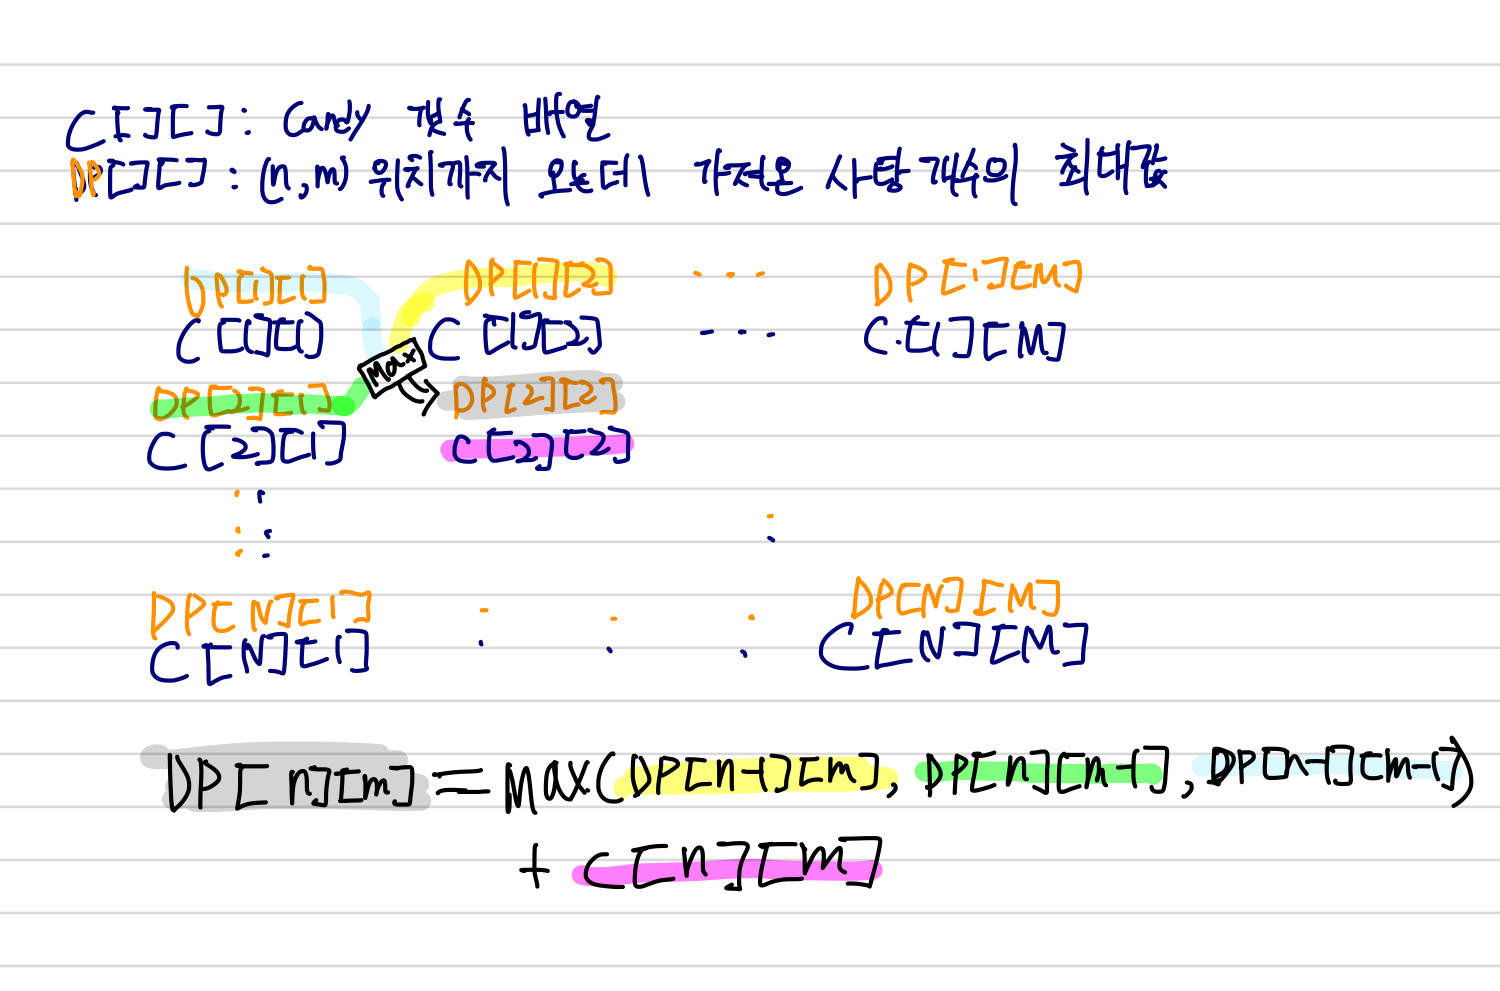 C[][] : Candy 갯수 배열
DP[][] : (n,m) 위치까지 오는데 가져온 사탕 개수의 최대값
DP[1][1] DP[1][2] ... DP[1][M]
C[1][1] C[1][2] ... C[1][M]
Max
DP[2][1] DP[2][2]
C[2][1] C[2][2]
DP[N][1] . . . DP[N][M]
C[N][1] . . . C[N][M]
DP[n][m] = Max(DP[n-1][m], DP[n][m-1], DP[n-1][m-1])
+ C[n][m]